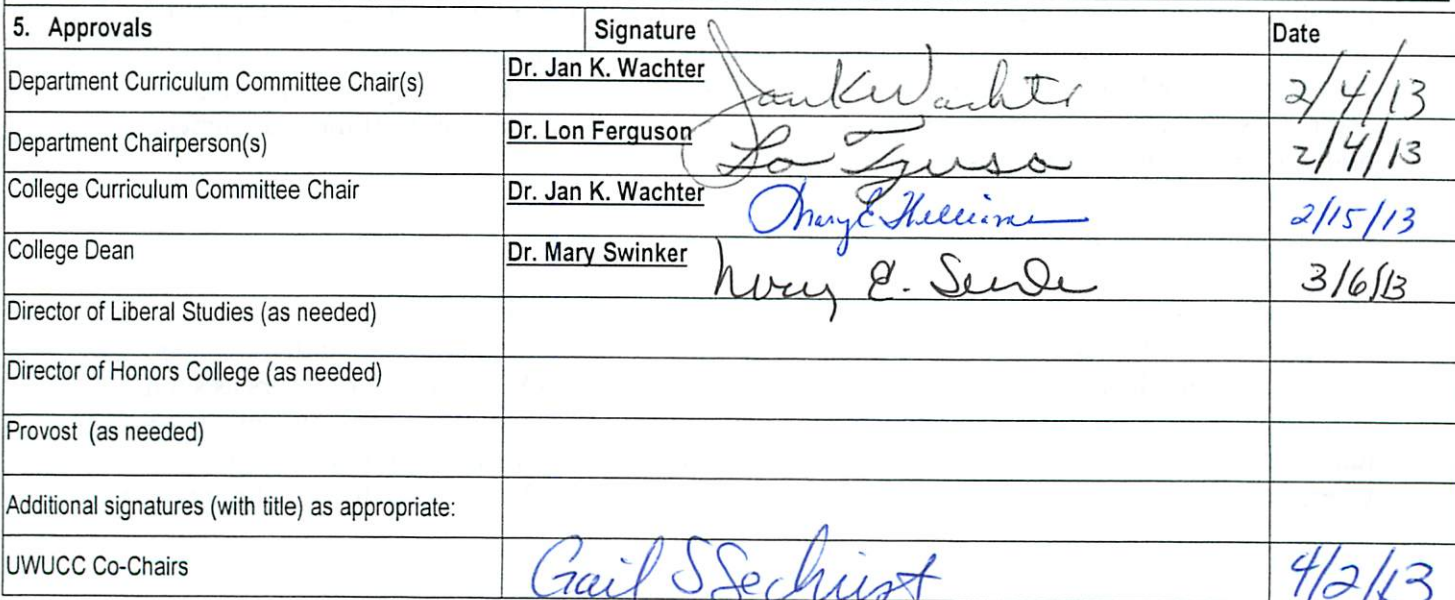 5. Approvals Signature Date
Department Curriculum Committee Chair(s) Dr. Jan K. Wachter Jan K Wachter 2/4/13
Department Chairperson(s) Dr. Lon Ferguson 2/4/13
College Curriculum Committee Chair Dr. Jan K. Wachter Mary E Williams 2/15/13
College Dean Dr. Mary Swinker Mary E. 3/6/13
Director of Liberal Studies (as needed)
Director of Honors College (as needed)
Provost (as needed)
Additional signatures (with title) as appropriate:
UWUCC Co-Chairs Gail S Sechrist 4/2/13